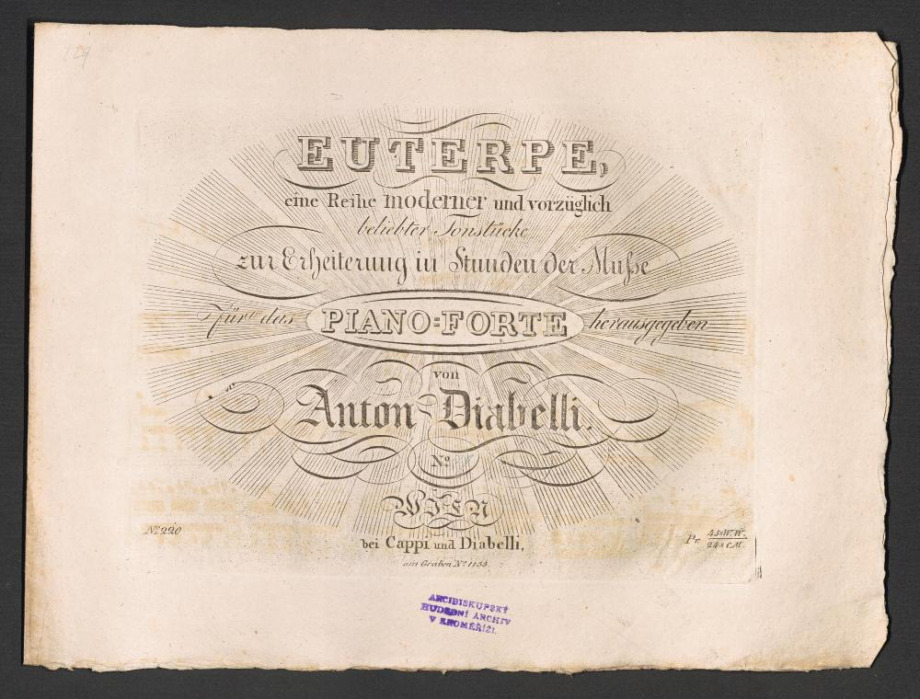 EUTERPE,
eine Reihe moderner und vorzüglich
beliebter Tonstücke
zur Erheiterung in Stunden der Muſse
Für das PIANO=FORTE herausgegeben
von
Anton Diabelli.
No.
WIEN
No. 220
bei Cappi und Diabelli,
am Graben No. 1133.
ARCIBISKUPSKÝ
HUDEBNÍ ARCHIV
V KROMĚŘÍŽI.